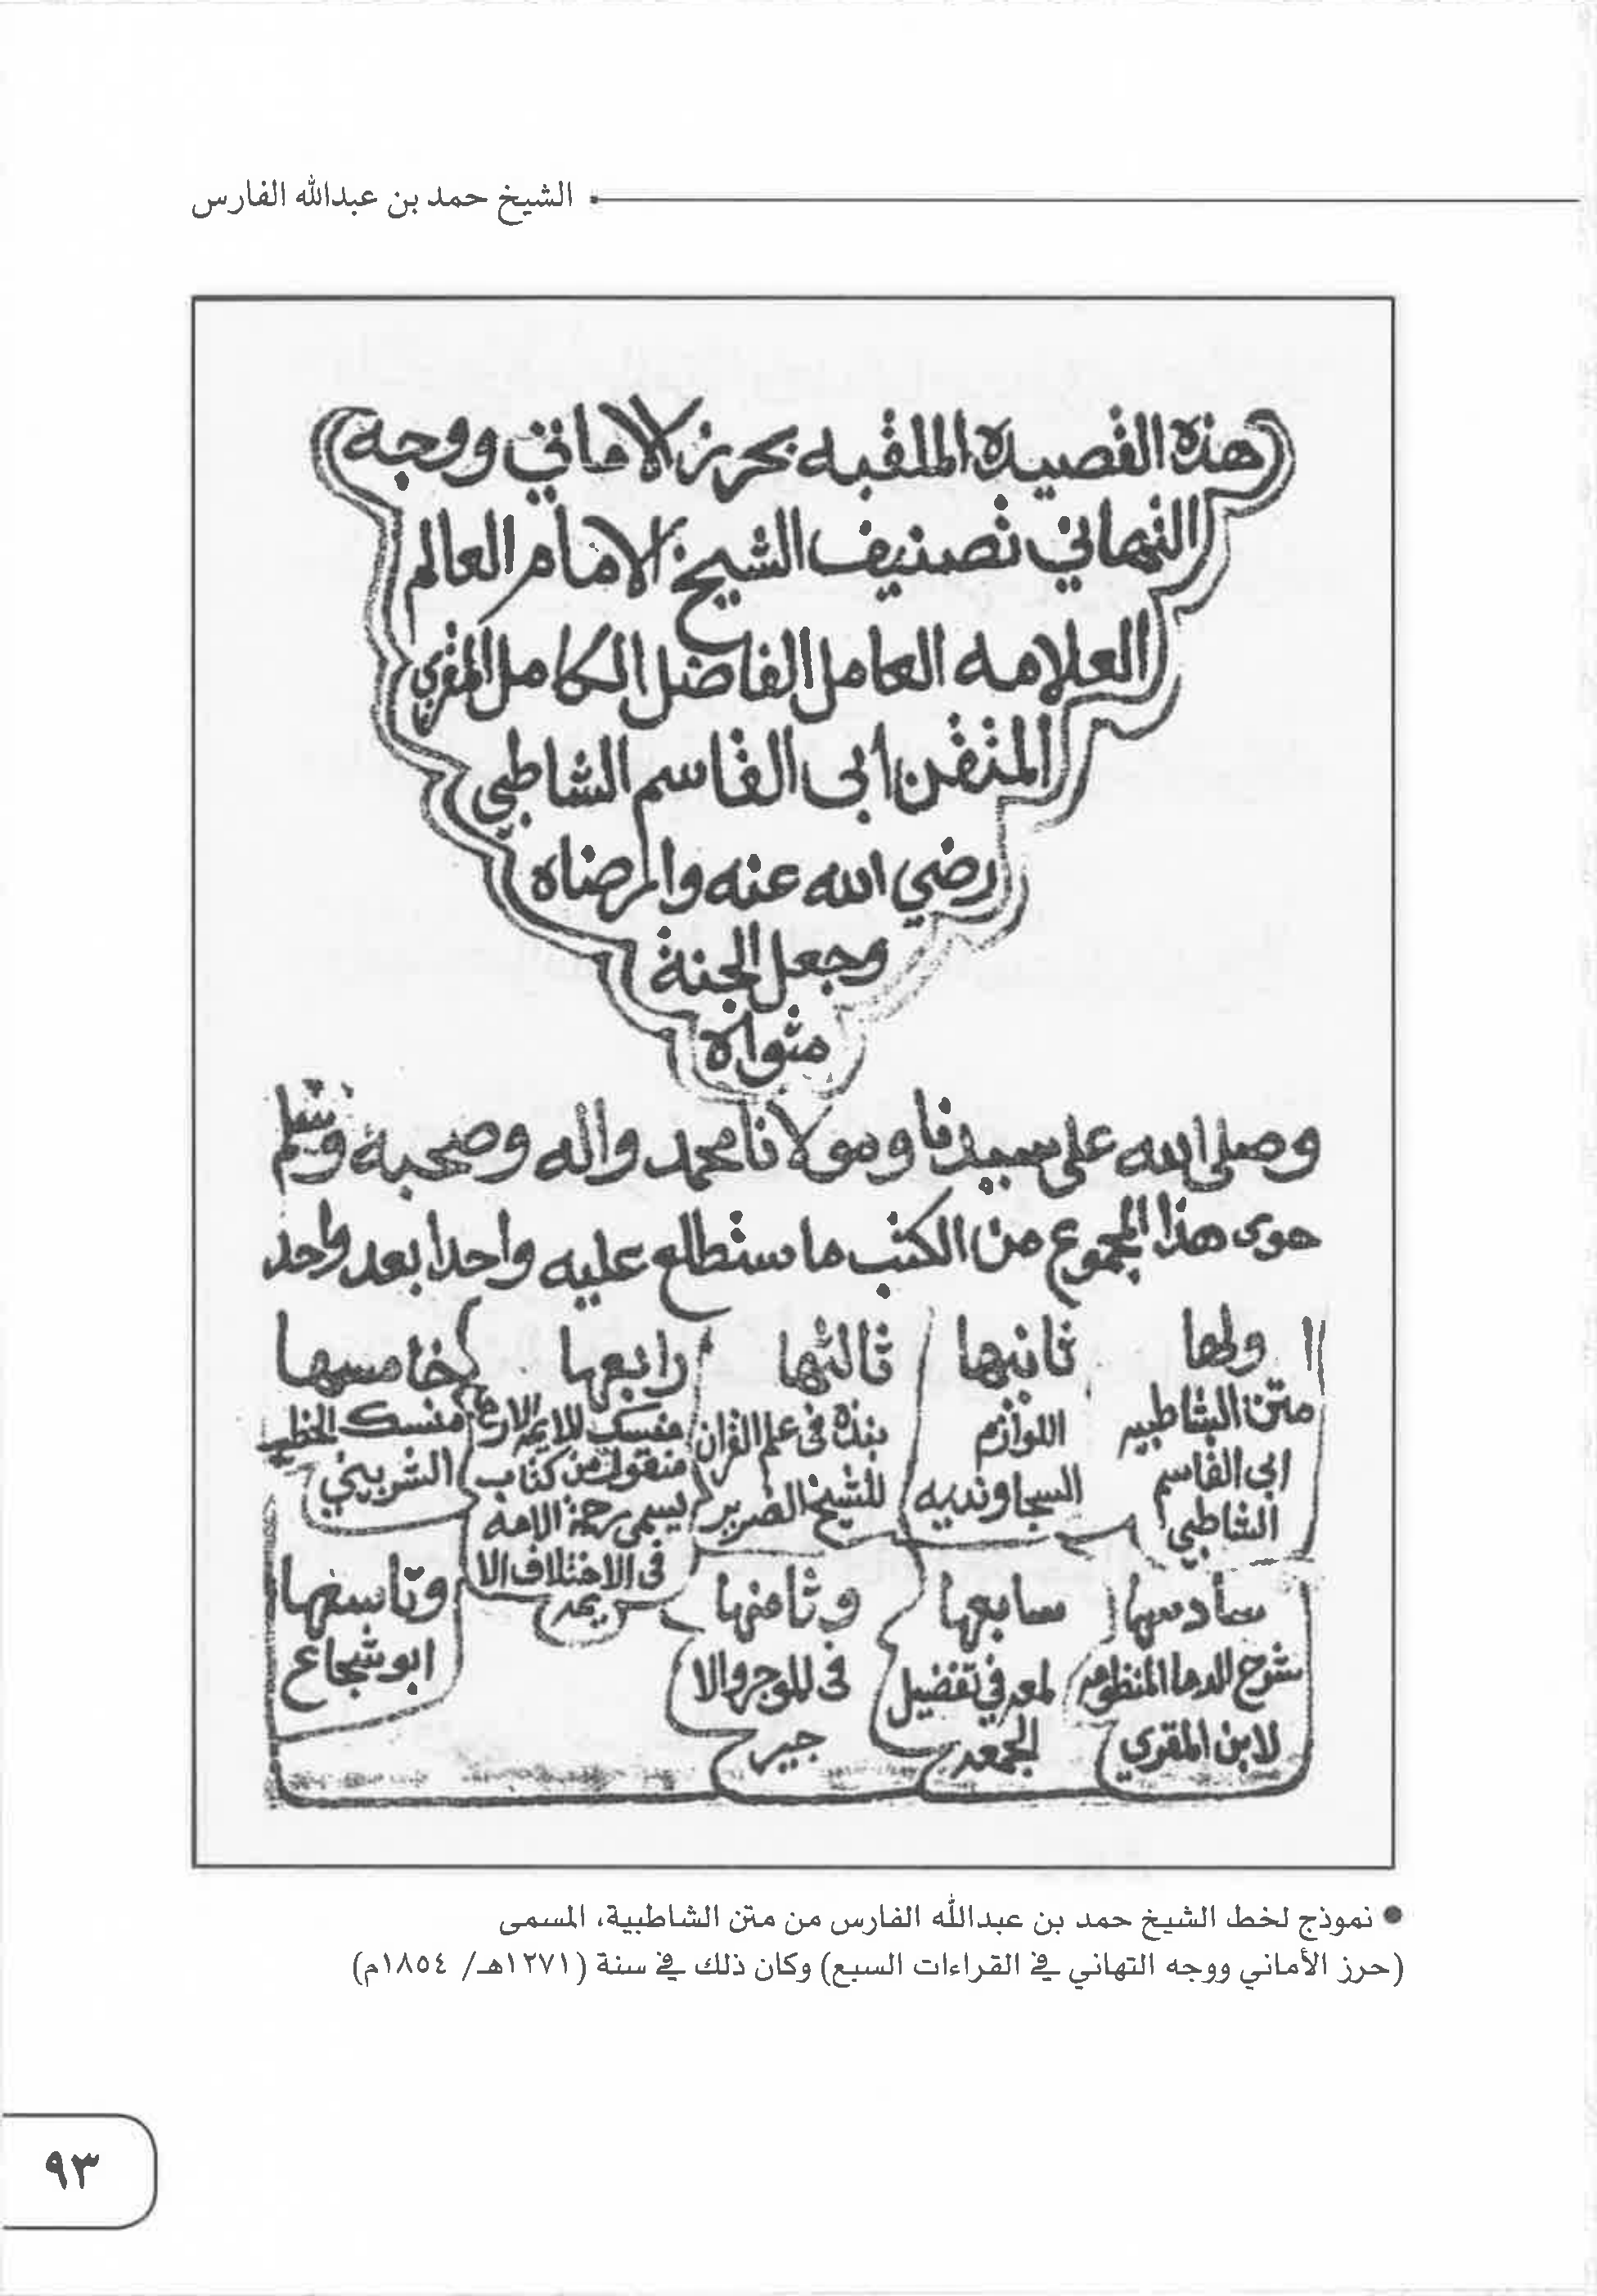 الشيخ حمد بن عبدالله الفارس
هذه القصيدة الملقبه بحرز الاماني ووجه
التهاني تصنيف الشيخ الامام العالم
العلامه العامل الفاضل الكامل المقري
المتقن ابى القاسم الشاطبي
رضي الله عنه وارضاه
وجعل الجنة
مثواه
وصلى الله على سيدنا ومولانا محمد واله وصحبه وسلم
هوى هذا المجموع من الكتب ما ستطلع عليه واحدا بعد واحد
اولها
متن الشاطبيه
ابي القاسم
الشاطبي
ثانيها
اللوازم
السجاونديه
ثالثها
بنذه في علم القران
للشيخ الضرير
رابعها
منسك للايمه الاربع
منقول من كتاب
يسمى رحمة الامة
فى الاختلاف الا
يمه
خامسها
منسك الخطيب
الشربيني
سادسها
شرح الدما المنظومه
لابن المقري
سابعها
لمعه في تفضيل
الجمعه
وثامنها
فى للوجر والا
جير
وتاسعها
ابو شجاع
● نموذج لخط الشيخ حمد بن عبدالله الفارس من متن الشاطبية، المسمى
(حرز الأماني ووجه التهاني في القراءات السبع) وكان ذلك في سنة (١٢٧١هـ/ ١٨٥٤م)
٩٣